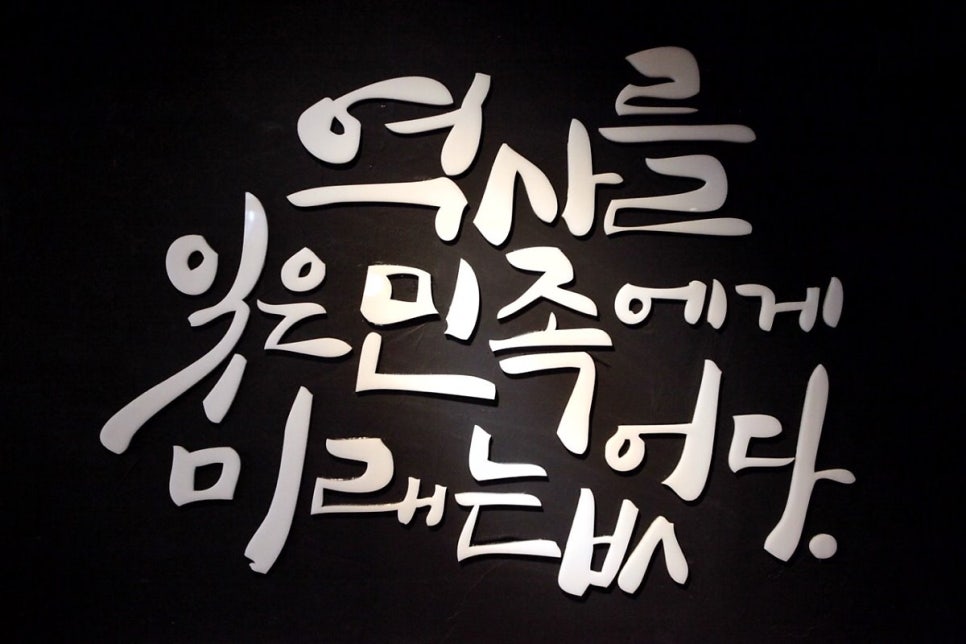 역사를
잊은 민족에게
미래는 없다.